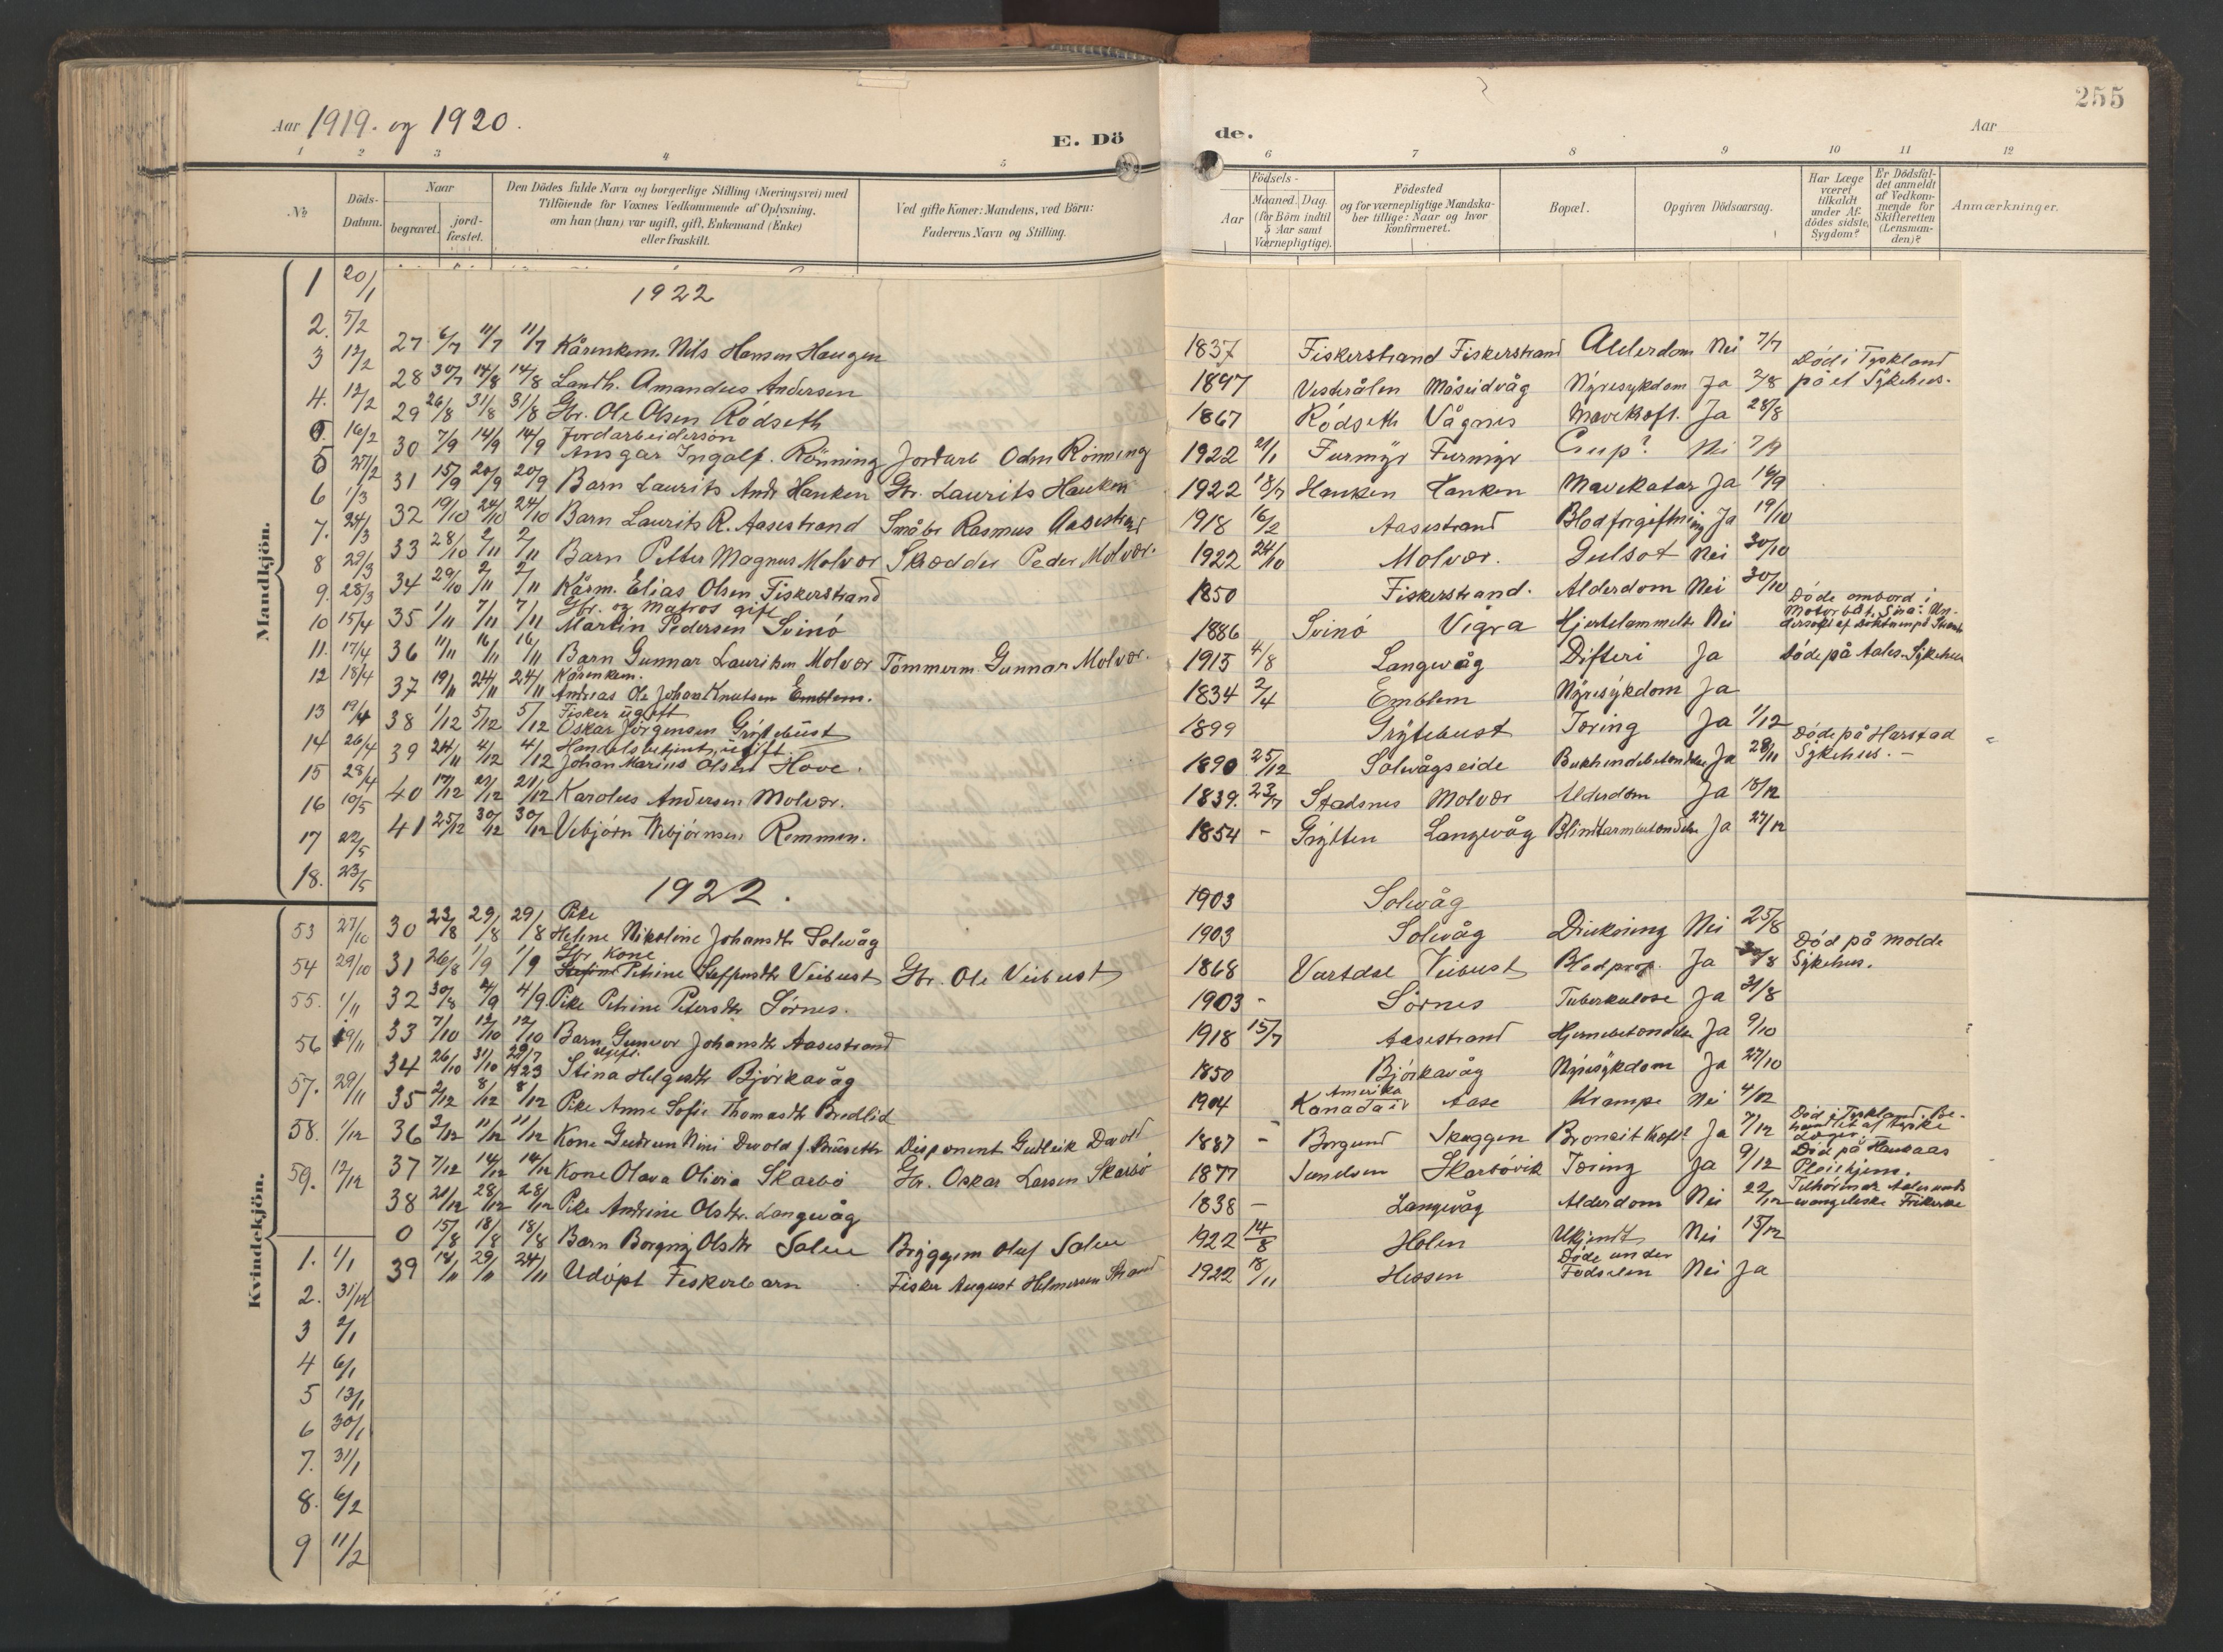 255
Aar 1919. og 1920.
E. Dö de.
Aar
1 2 3 4 5 6 7 8 9 10 11 12
№
Döds-Datum.
Naar
begravet.
jord-fæstet.
Den Dödes fulde Navn og borgerlige Stilling (Næringsvei) med
Tilföiende for Voxnes Vedkommende af Oplysning.
om han (hun) var ugift, gift, Enkemand (Enke)
eller fraskilt.
Ved gifte Koner: Mandens, ved Börn:
Faderens Navn og Stilling.
Födsels-
Aar
Maaned. Dag.
(for Börn indtil
5 Aar samt
Værnepligtige).
Födested
og for værnepligtige Mandska-
ber tillige: Naar og hvor
konfirmeret.
Bopæl.
Opgiven Dödsaarsag.
Har Læge
været
tilkaldt
under Af-
dödes sidste
Sygdom?
Er Dödsfal-
det anmeldt
af Vedkom-
mende for
Skifteretten
(Lensman-
den)?
Anmærkninger.
Mandkjön.
1 20/1
2. 5/2
3 12/2
4. 12/2
5 27/2
6 1/3
7. 24/3
8 29/3
9. 28/3
10 15/4
11. 17/4
12 18/4
13 19/4
14 26/4
15 28/4
16 10/5
17 22/5
18. 23/5
1922
27 6/7 11/7 11/7 Kårenkem. Nils Hansen Haugen 1837 Fiskerstrand Fiskerstrand Alderdom Nei 7/7
28 30/7 14/8 14/8 Landh. Amandus Andersen 1897 Vesterålen Måseidvåg Nyresykdom Ja 2/8 Död i Tyskland på et Sykehus.
29 26/8 31/8 31/8 Gbr. Ole Olsen Rödseth 1867 Rödseth Vågnes Mavekræft. Ja 28/8
30 7/9 14/9 14/9 Jordarbeidersön
Ansgar Ingolf. Rönning Jordarb Odin Rönning 1922 21/1 Furmyr Furmyr Crup? Nei 7/9
31 15/9 20/9 20/9 Barn Laurits Andr Hanken Gbr. Laurits Hanken 1922 18/7 Hanken Hanken Mavekatar Ja 16/9
32 19/10 24/10 24/10 Barn Laurits R. Aasestrand Småbr Rasmus Aasestrand 1918 16/2 Aasestrand Blodforgiftning Ja 19/10
33 28/10 2/11 2/11 Barn Petter Magnus Molvær Skrædder Peder Molvær. 1922 24/10 Molvær. Gulsot Nei 30/10
34 29/10 2/11 2/11 Kårm. Elias Olsen Fiskerstrand 1850 Fiskerstrand. Alderdom Nei 30/10
35 1/11 7/11 7/11 Gbr. og matros gift
Martin Pedersen Svinö 1886 Svinö Vigra Hjertelammelse Nei Döde ombord i
36 11/11 16/11 16/11 Barn Gunnar Lauritsen Molvær Tömmerm Gunnar Molvær. 1915 4/8 Langevåg Difteri Ja döde på Aales. Sykehus
37 19/11 24/11 24/11 Kårenkem.
Andreas Ole Johan Knutsen Emblem. 1834 2/4 Emblem Nyresykdom Ja
38 1/12 5/12 5/12 Fisker ugift
Oskar Jörgensen Grytebust 1899 Grytebust Tæring Ja 1/12
39 24/11 4/12 4/12 Handelsbetjent, ugift.
Johan Marius Olsen Hove. 1890 25/12 Solevågseide Bukhindebetændelse Ja 28/11 Döde på Harstad Sykehus. -
40 17/12 21/12 21/12 Karolus Andersen Molvær. 1839. 23/7 Stadsnes Molvær Alderdom Ja 18/12
41 25/12 30/12 30/12 Vebjörn Vebjörnsen Remmen. 1854 - Grytten Langevåg Blindtarmbetændelse Ja 27/12
Kvindekjön.
53 27/10
54 29/10
55. 1/11
56 19/11
57. 29/11
58. 1/12
59. 12/12
1922.
1903 Solevåg
30 23/8 29/8 29/8 Pike
Heline Nikoline Johansdtr Solevåg 1903 Solevåg Drukning Nei 25/8
31 26/8 1/9 1/9 Gbr Kone
Petrine Steffensdtr Veibust Gbr. Ole Veibust 1868 Vartdal Veibust Blodprop. Ja 30/8 Död på Molde Sykehus.
32 30/8 4/9 4/9 Pike Petrine Petersdtr Sörnes. 1903 - Sörnes Tuberkulose Ja 31/8
33 7/10 12/10 12/10 Barn Gunvor Johansdtr Aasestrand 1918 15/7 Aasestrand Hjernebetændelse Ja 9/10
34 26/10 31/10 29/7 1923 Ugift.
Stina Helgesdtr Björkavåg 1850 Björkavåg Nyresykdom Ja 27/10
35 2/12 8/12 8/12 Pike Anne Sofie Thomasdtr Bredlid 1904 Amerika
Kanada Aase Krampe Nei 4/12
36 2/12 11/12 11/12 Kone Gudrun Nini Devold f. Brüseth Disponent Gutleik Devold 1887 - Borgund Skuggen Bronkit Kræft? Ja 7/12 Död i Tyskland.
37 7/12 14/12 14/12 Kone Olava Olivia Skarbö Gbr. Oskar Larsen Skarbö 1877 Sunelven Skarbövik Tæring Ja 9/12 Död på Haukaas Pleiehjem.
38 21/12 28/12 28/12 Pike Andrine Olsdtr. Langevåg 1838 - Langevåg Alderdom Nei 22/12 Tilhörende Aalesunds evangeliske Frikirke
0 15/8 18/8 18/8 Barn Borgny Olsdtr Solem Bryggem Oluf Solem 1922 14/8 Holen Ukjendt Nei 15/12
39 18/11 29/11 24/11 Udöpt Fiskerbarn Fisker August Helmersen Strand 1922 18/11 Hessen Döde under Födselen Nei Ja
1. 1/1
2. 31/12
3 2/1
4 6/1
5 13/1
6 30/1
7. 31/1
8. 6/2
9 11/2